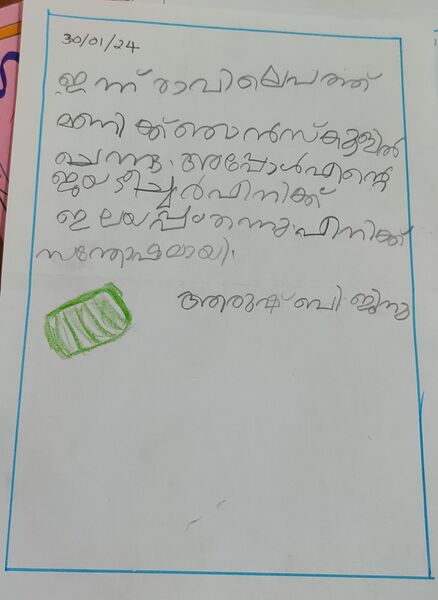 30/01/24
ഇന്ന് രാവിലെ പത്ത്
മണിക്ക് ഞാൻ സ്കൂളിൽ
ചെന്നു. അപ്പോൾ എന്റെ
ജയ ടീച്ചർ എനിക്ക്
ഇലയപ്പം തന്നു. എനിക്ക്
സന്തോഷമായി.
ആരുഷ് ബി ജിനു